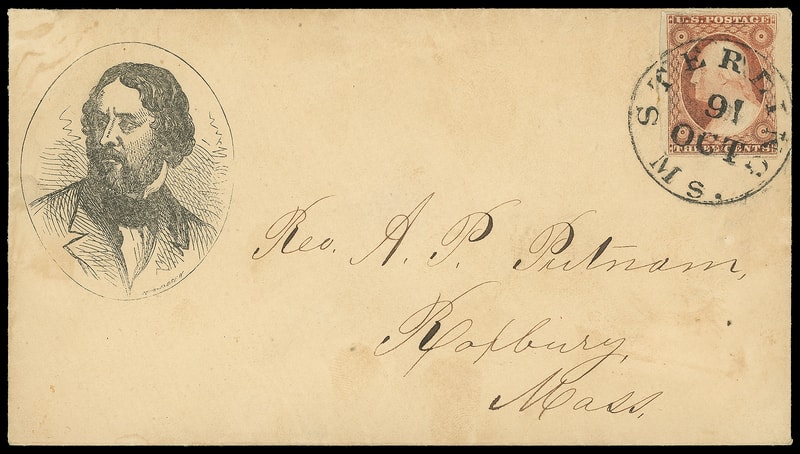 U.S. POSTAGE
THREE CENTS
STERLING
91
OCT
MS.
Rev. A. P. Putnam,
Roxbury,
Mass.